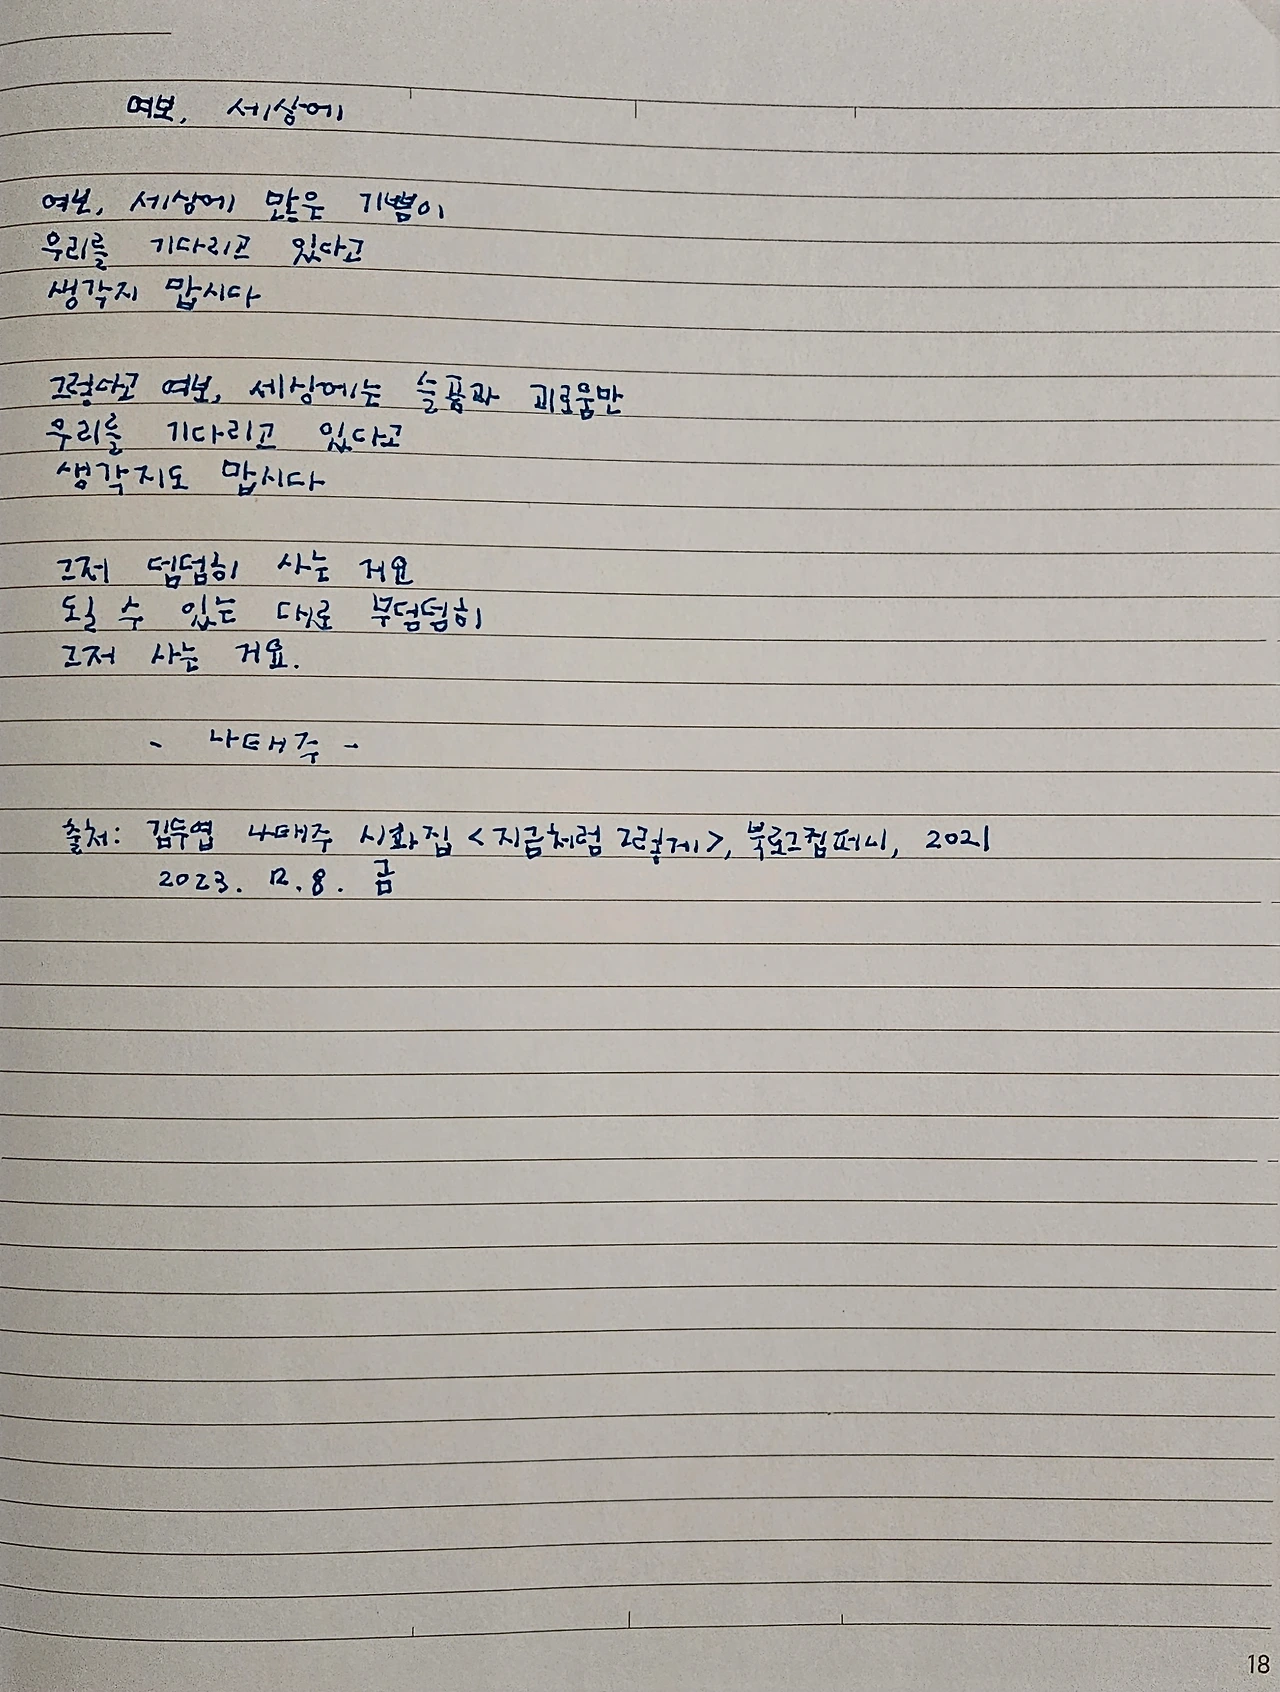 여보, 세상에
여보, 세상에 많은 기쁨이
우리를 기다리고 있다고
생각지 맙시다
그렇다고 여보, 세상에는 슬픔과 괴로움만
우리를 기다리고 있다고
생각지도 맙시다
그저 덤덤히 사는 거요
될 수 있는 대로 무덤덤히
그저 사는 거요.
- 나태주 -
출처: 김두엽 나태주 시화집 <지금처럼 그렇게>, 북로그컴퍼니, 2021
2023. 12. 8. 금
18